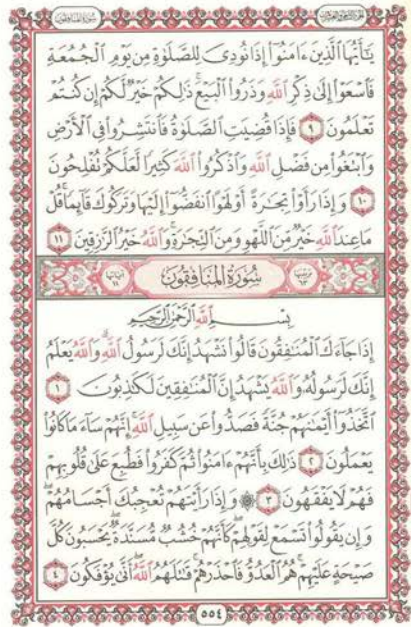 سُورَةُ المنَافِقُون
الجزء الثامن والعشرون
يَٰٓأَيُّهَا الَّذِينَ ءَامَنُوٓا۟ إِذَا نُودِىَ لِلصَّلَوٰةِ مِن يَوْمِ الْجُمُعَةِ
فَاسْعَوْا۟ إِلَىٰ ذِكْرِ اللَّهِ وَذَرُوا۟ الْبَيْعَ ۚ ذَٰلِكُمْ خَيْرٌ لَّكُمْ إِن كُنتُمْ
تَعْلَمُونَ ٩ فَإِذَا قُضِيَتِ الصَّلَوٰةُ فَانتَشِرُوا۟ فِى الْأَرْضِ
وَابْتَغُوا۟ مِن فَضْلِ اللَّهِ وَاذْكُرُوا۟ اللَّهَ كَثِيرًا لَّعَلَّكُمْ تُفْلِحُونَ
١٠ وَإِذَا رَأَوْا۟ تِجَٰرَةً أَوْ لَهْوًا انفَضُّوٓا۟ إِلَيْهَا وَتَرَكُوكَ قَآئِمًا ۚ قُلْ
مَا عِندَ اللَّهِ خَيْرٌ مِّنَ اللَّهْوِ وَمِنَ التِّجَٰرَةِ ۚ وَاللَّهُ خَيْرُ الرَّٰزِقِينَ ١١
سُورَةُ المنَافِقُون
بِسْمِ اللَّهِ الرَّحْمَٰنِ الرَّحِيمِ
إِذَا جَآءَكَ الْمُنَٰفِقُونَ قَالُوا۟ نَشْهَدُ إِنَّكَ لَرَسُولُ اللَّهِ ۗ وَاللَّهُ يَعْلَمُ
إِنَّكَ لَرَسُولُهُۥ وَاللَّهُ يَشْهَدُ إِنَّ الْمُنَٰفِقِينَ لَكَٰذِبُونَ ١
اتَّخَذُوٓا۟ أَيْمَٰنَهُمْ جُنَّةً فَصَدُّوا۟ عَن سَبِيلِ اللَّهِ ۚ إِنَّهُمْ سَآءَ مَا كَانُوا۟
يَعْمَلُونَ ٢ ذَٰلِكَ بِأَنَّهُمْ ءَامَنُوا۟ ثُمَّ كَفَرُوا۟ فَطُبِعَ عَلَىٰ قُلُوبِهِمْ
فَهُمْ لَا يَفْقَهُونَ ٣ ۞ وَإِذَا رَأَيْتَهُمْ تُعْجِبُكَ أَجْسَامُهُمْ ۖ
وَإِن يَقُولُوا۟ تَسْمَعْ لِقَوْلِهِمْ ۖ كَأَنَّهُمْ خُشُبٌ مُّسَنَّدَةٌ ۖ يَحْسَبُونَ كُلَّ
صَيْحَةٍ عَلَيْهِمْ ۚ هُمُ الْعَدُوُّ فَاحْذَرْهُمْ ۚ قَٰتَلَهُمُ اللَّهُ ۖ أَنَّىٰ يُؤْفَكُونَ ٤
٥٥٤